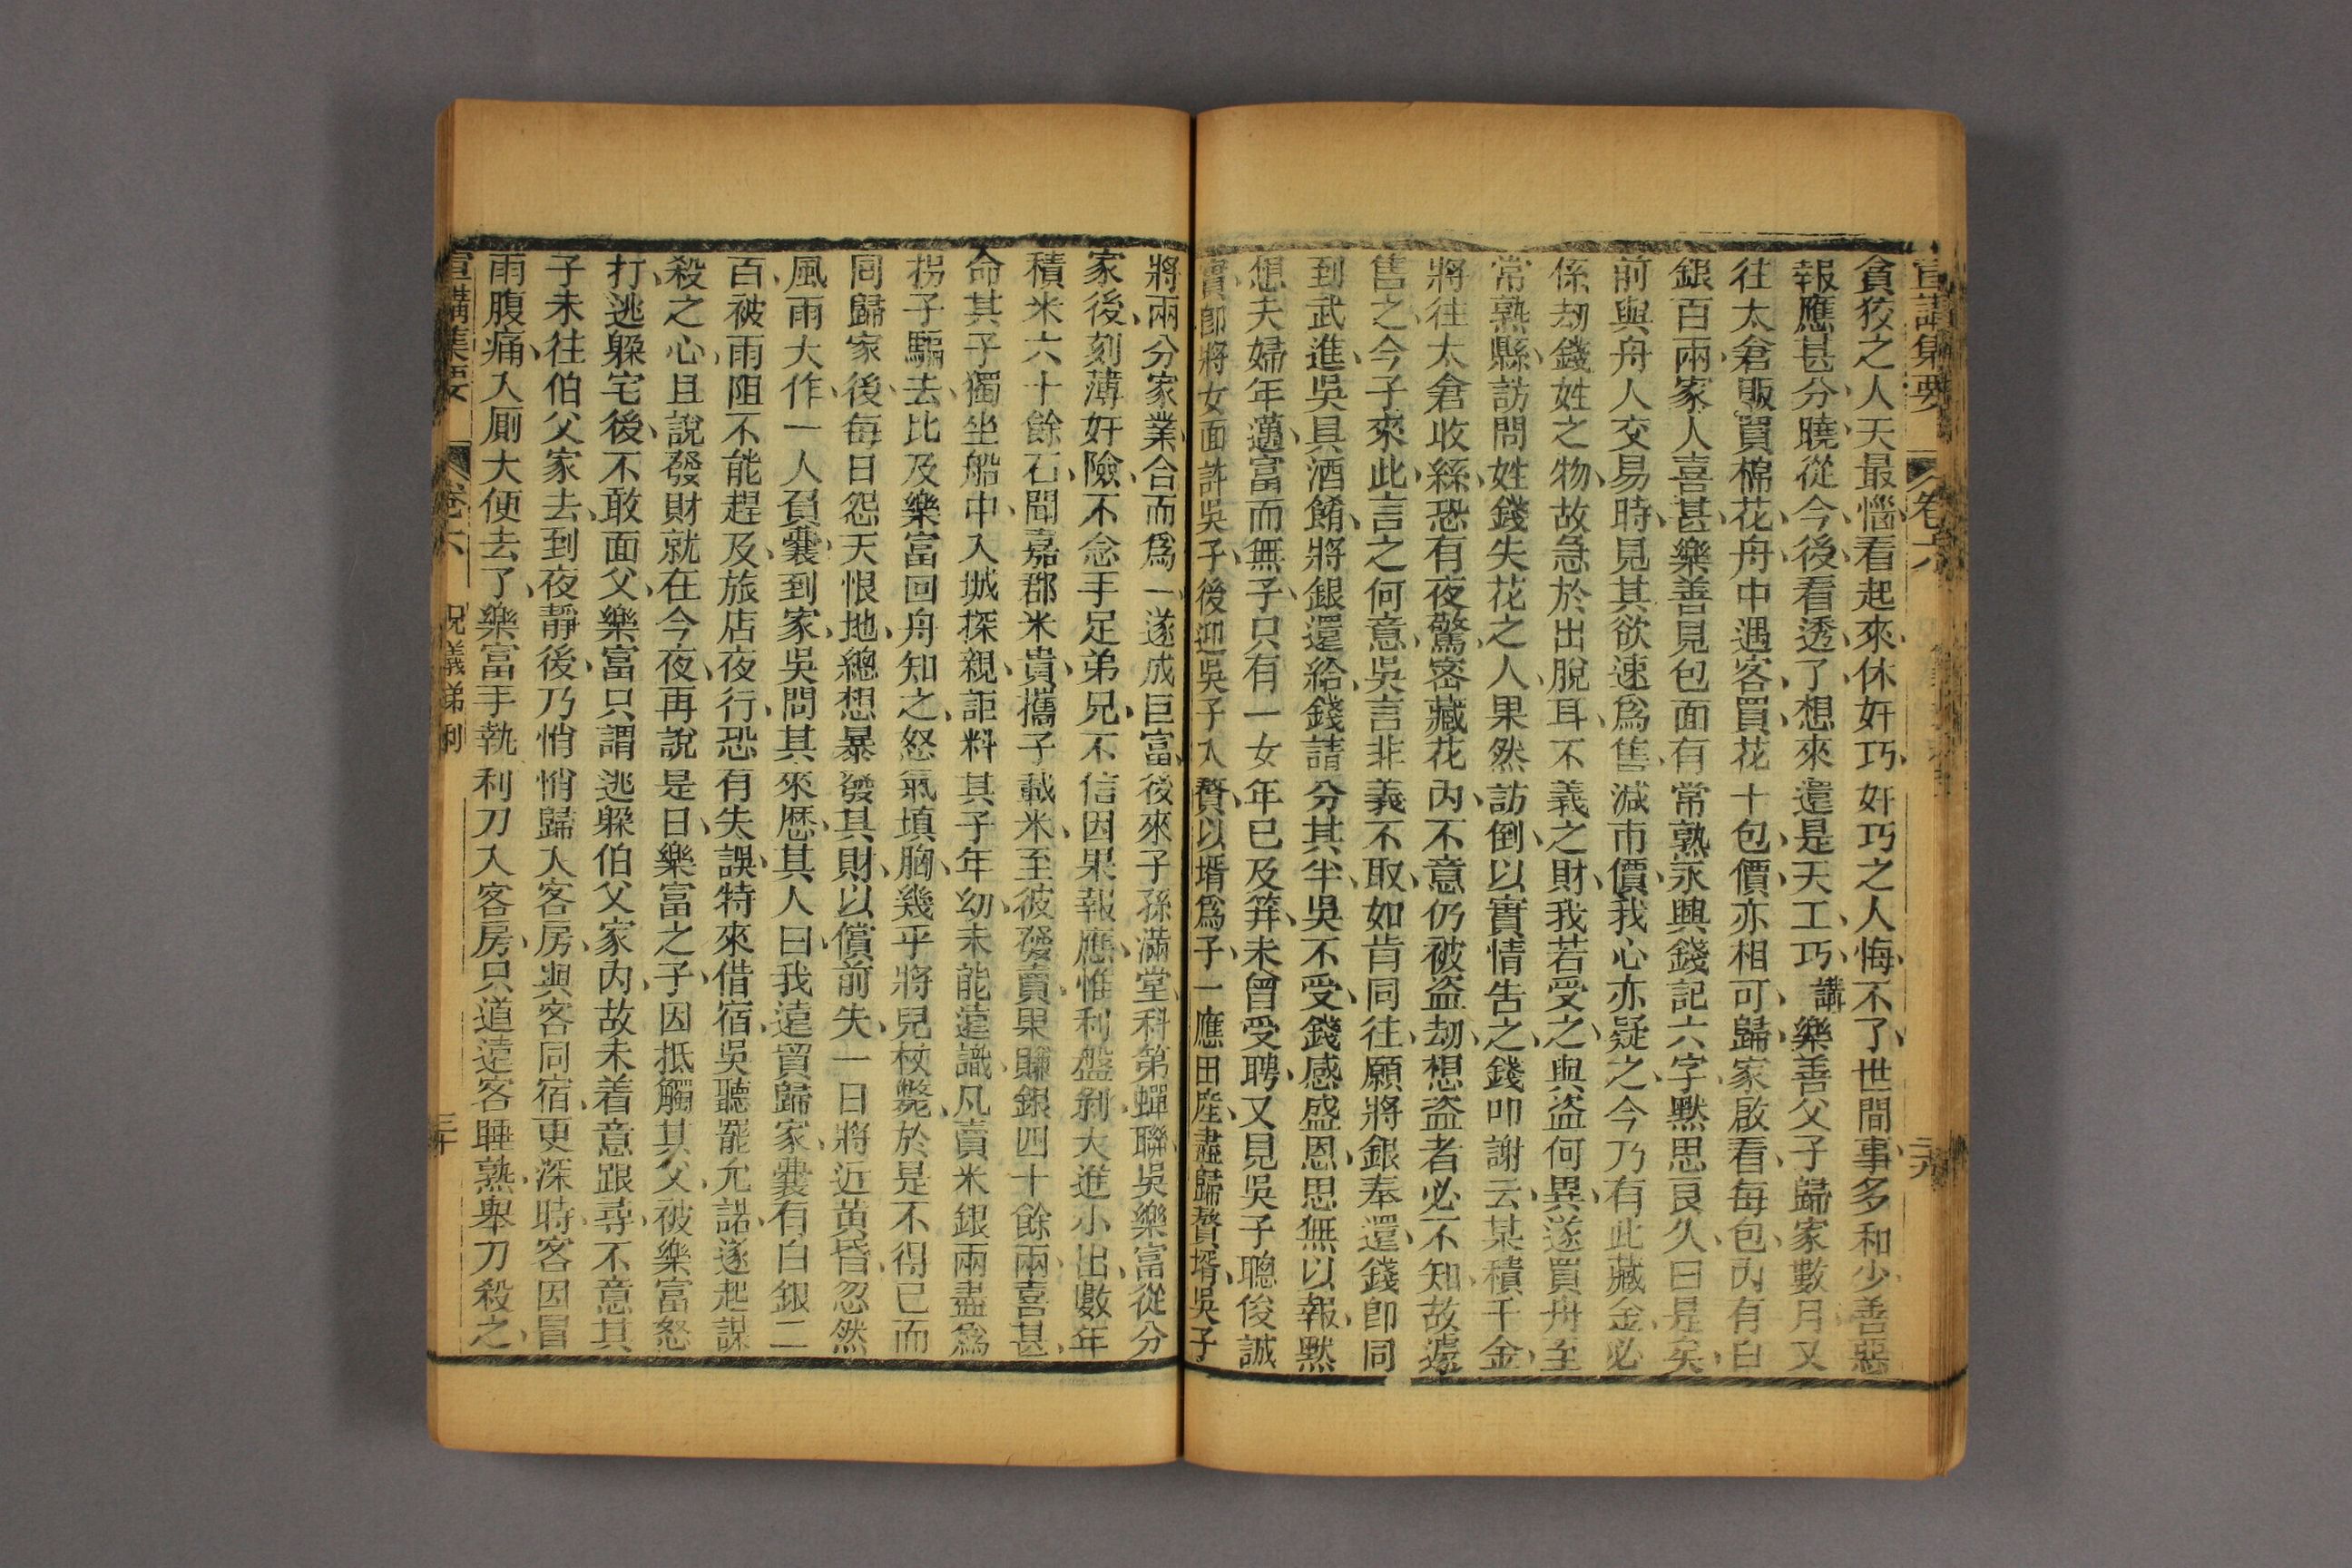 宣講集要 卷六 二九
貪狡之人天最惱、看起來、休奸巧、奸巧之人悔不了、世間事、多和少、善惡
報應甚分曉、從今後、看透了、想來還是天工巧、講樂善父子歸家、數月、又
往太倉販買棉花、舟中遇客買花十包、價亦相可、歸家啟看、每包內有白
銀百兩、家人喜甚、樂善見包面有常熟永興錢記六字、默思良久、曰、是矣、
前與舟人交易時、見其欲速為售、減市價、我心亦疑之、今乃有此藏金、必
係劫錢姓之物、故急於出脫耳、不義之財、我若受之、與盜何異、遂買舟至
常熟縣、訪問姓錢失花之人、果然訪倒、以實情告之、錢叩謝云、某積千金、
將往太倉收絲、恐有夜驚、密藏花內、不意仍被盜刼、想盜者必不知、故遽
售之、今子來此、言之何意、吳言非義不取、如肯同往、願將銀奉還、錢即同
到武進、吳具酒餚、將銀還給、錢請分其半、吳不受、錢感盛恩、思無以報、默
想夫婦年邁、富而無子、只有一女、年已及笄、未曾受聘、又見吳子聰俊誠
實、即將女面許吳子、後迎吳子入贅、以壻為子、一應田產、盡歸贅壻、吳子
將兩分家業、合而為一、遂成巨富、後來子孫滿堂、科第蟬聯、吳樂富從分
家後、刻薄奸險、不念手足弟兄、不信因果報應、惟利盤剝、大進小出、數年
積米六十餘石、聞嘉郡米貴、攜子載米、至彼發賣、果賺銀四十餘兩、喜甚、
命其子獨坐船中、入城探親、詎料其子年幼、未能遠識、凡賣米銀兩、盡為
拐子騙去、比及樂富回舟知之、怒氣填胸、幾乎將兒杖斃、於是不得已而
同歸家後、每日怨天恨地、總想暴發其財、以償前失、一日將近黃昏、忽然
風雨大作、一人負囊到家、吳問其來歷、其人曰、我遠貿歸家、囊有白銀二
百、被雨阻不能趕及旅店、夜行恐有失誤、特來借宿、吳聽罷允諾、遂起謀
殺之心、且說發財就在今夜、再說是日、樂富之子、因抵觸其父、被樂富怒
打、逃躲宅後、不敢面父、樂富只謂逃躲伯父家內、故未着意跟尋、不意其
子未往伯父家去、到夜靜後、乃悄悄歸入客房、與客同宿、更深時、客因冒
雨腹痛、入厠大便去了、樂富手執利刀入客房、只道遠客睡熟、舉刀殺之、
宣講集要 卷六